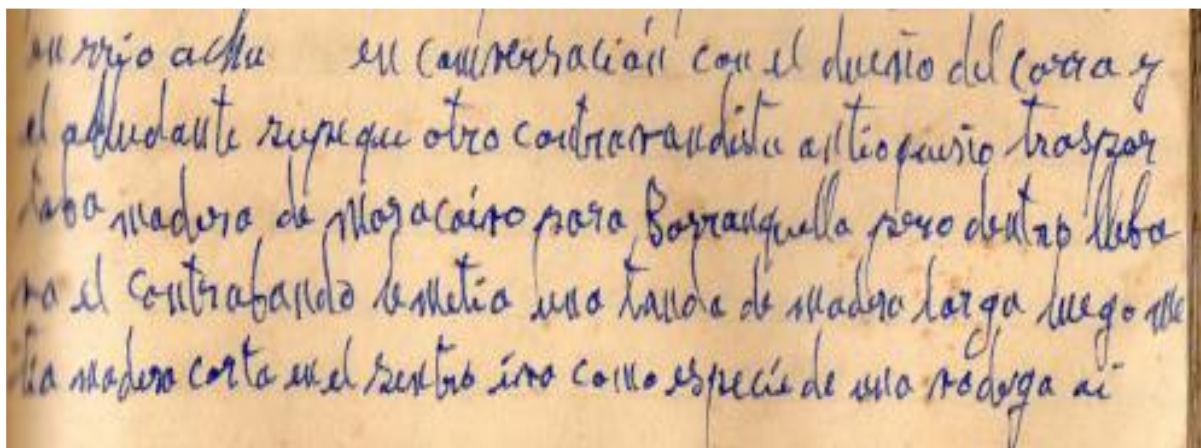 en conversación con el dueño del corra y
el alludante supe que otro contravandista antioqueño traspor
taba madera de maracaivo para Barranquilla pero dentro lleba
va el contrabando le metia una tanda de madera larga luego me
tia madera corta en el sentro iva como especie de una vodega ai